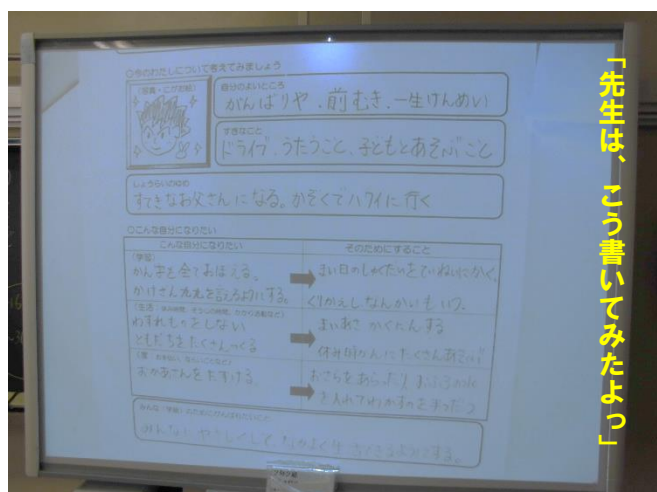 「先生は、こう書いてみたよっ」
○今のわたしについて考えてみましょう
自分のよいところ
がんばりや、前むき、一生けんめい
すきなこと
ドライブ、うたうこと、子どもとあそぶこと
しょうらいのゆめ
すてきなお父さんになる。かぞくでハワイに行く
○こんな自分になりたい
こんな自分になりたい
そのためにすること
(学習)
かん字を全ておぼえる。
かけざん九九を言えるようにする。
まい日のしゅくだいをていねいにかく。
くりかえしなんかいもいう。
わすれものをしない
ともだちをたくさんつくる
まいあさかくにんする
休み時かんにたくさんあそぶ
おかあさんをたすける
おさらをあらったり おふろの水
を入れてわかすのをてつだう